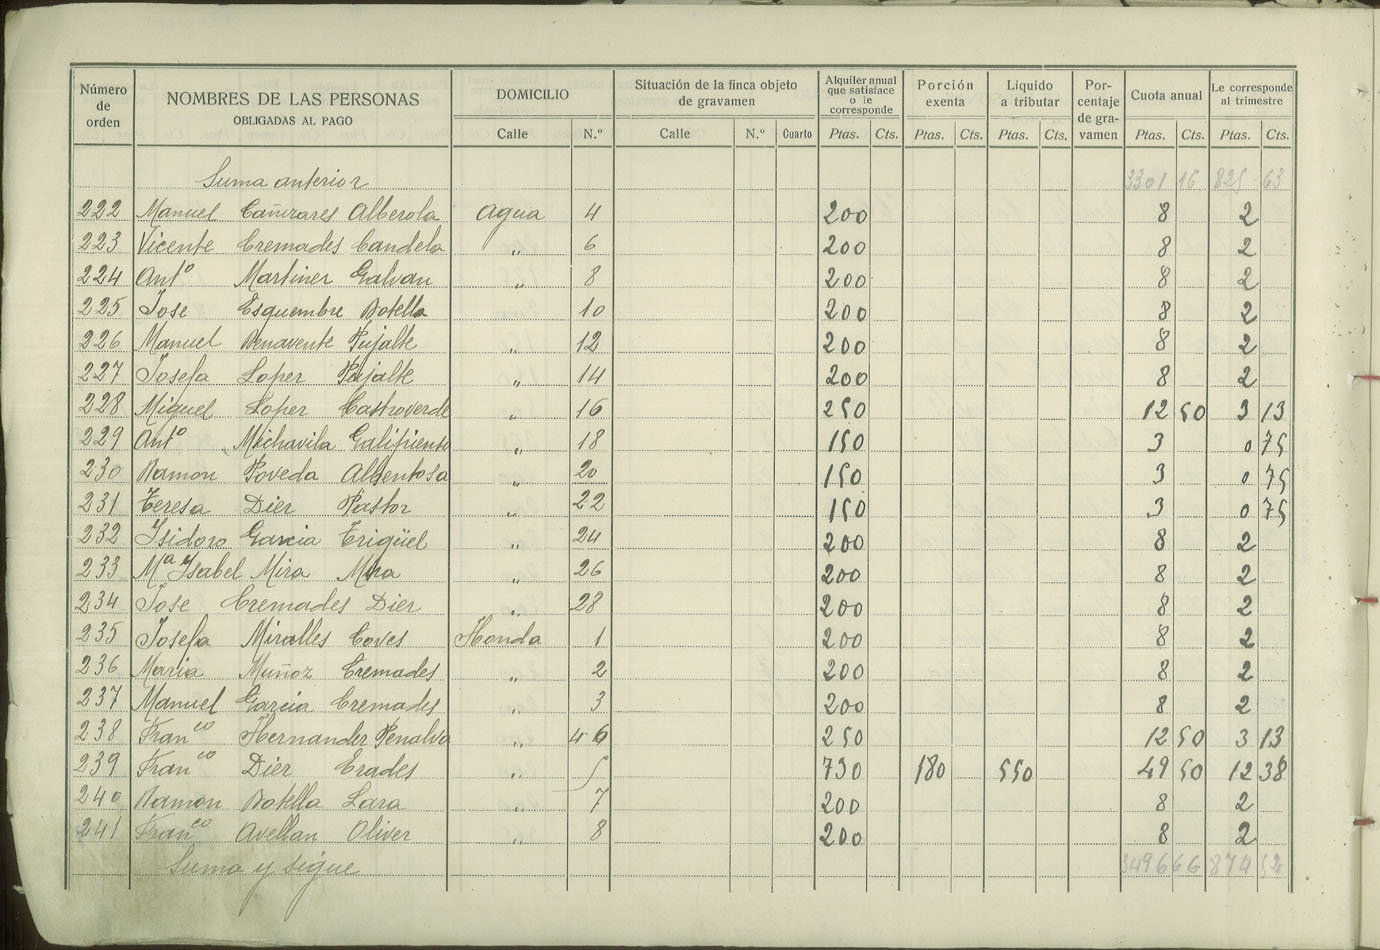 Número de orden NOMBRES DE LAS PERSONAS OBLIGADAS AL PAGO DOMICILIO Situación de la finca objeto de gravamen Alquiler anual que satisface o le corresponde Porción exenta Líquido a tributar Porcentaje de gravamen Cuota anual Le corresponde al trimestre
Calle N.º Calle N.º Cuarto Ptas. Cts. Ptas. Cts. Ptas. Cts. Ptas. Cts. Ptas. Cts.
Suma anterior 3301 16 825 63
222 Manuel Cañizares Alberola Agua 4 200 8 2
223 Vicente Cremades Candela " 6 200 8 2
224 Antº Martinez Galvan " 8 200 8 2
225 Jose Esquembre Botella " 10 200 8 2
226 Manuel Benavente Pujalte " 12 200 8 2
227 Josefa Lopez Pujalte " 14 200 8 2
228 Miguel Lopez Castroverde " 16 250 12 50 3 13
229 Antº Michavila Galipienso " 18 150 3 0 75
230 Ramon Poveda Albentosa " 20 150 3 0 75
231 Teresa Diez Pastor " 22 150 3 0 75
232 Isidoro Garcia Trigüel " 24 200 8 2
233 Mª Isabel Mira Mira " 26 200 8 2
234 Jose Cremades Diez " 28 200 8 2
235 Josefa Miralles Coves Honda 1 200 8 2
236 Maria Muñoz Cremades " 2 200 8 2
237 Manuel Garcia Cremades " 3 200 8 2
238 Franco Hernandez Penalva " 4-6 250 12 50 3 13
239 Franco Diez Erades " 5 730 180 550 49 50 12 38
240 Ramon Botella Lara " 7 200 8 2
241 Franco Avellan Oliver " 8 200 8 2
Suma y sigue 3496 66 874 52